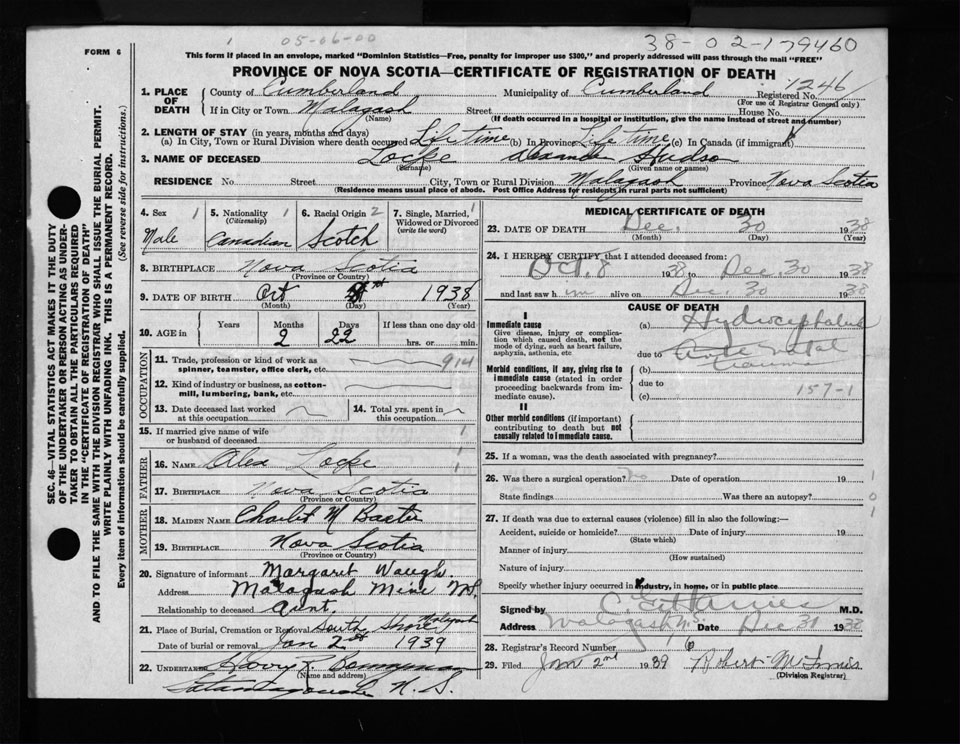 05-06-00
38-02-179460
FORM 6
This form if placed in an envelope, marked "Dominion Statistics—Free, penalty for improper use $300," and properly addressed will pass through the mail "FREE"
PROVINCE OF NOVA SCOTIA—CERTIFICATE OF REGISTRATION OF DEATH
1. PLACE OF DEATH County of Cumberland Municipality of Cumberland Registered No. 1246
(For use of Registrar General only)
If in City or Town Malagash Street House No.
(Name) (If death occurred in a hospital or institution, give the name instead of street and number)
2. LENGTH OF STAY (in years, months and days)
(a) In City, Town or Rural Division where death occurred Life time (b) In Province Life time (c) In Canada (if immigrant)
3. NAME OF DECEASED Locke Alexander Hudson
(Surname) (Given name or names)
RESIDENCE No. Street City, Town or Rural Division Malagash Province Nova Scotia
(Residence means usual place of abode. Post Office Address for residents in rural parts not sufficient)
SEC. 46—VITAL STATISTICS ACT MAKES IT THE DUTY
OF THE UNDERTAKER OR PERSON ACTING AS UNDER-
TAKER TO OBTAIN ALL THE PARTICULARS REQUIRED
IN THE "CERTIFICATE OF REGISTRATION OF DEATH"
AND TO FILE THE SAME WITH THE DIVISION REGISTRAR WHO SHALL ISSUE THE BURIAL PERMIT.
WRITE PLAINLY WITH UNFADING INK. THIS IS A PERMANENT RECORD.
Every item of information should be carefully supplied. (See reverse side for instructions.)
4. Sex 1 5. Nationality 1 6. Racial Origin 2 7. Single, Married, 1
(Citizenship) Widowed or Divorced
Male Canadian Scotch (write the word)
8. BIRTHPLACE Nova Scotia
(Province or Country)
9. DATE OF BIRTH Oct 8th 1938
(Month) (Day) (Year)
10. AGE in Years Months Days If less than one day old
2 22 hrs. or min.
OCCUPATION
11. Trade, profession or kind of work as
spinner, teamster, office clerk, etc. 914
12. Kind of industry or business, as cotton-
mill, lumbering, bank, etc.
13. Date deceased last worked at this occupation 14. Total yrs. spent in this occupation
15. If married give name of wife
or husband of deceased
FATHER
16. NAME Alex Locke
17. BIRTHPLACE Nova Scotia
(Province or Country)
MOTHER
18. MAIDEN NAME Charlot M Baxter
19. BIRTHPLACE Nova Scotia
(Province or Country)
20. Signature of informant Margaret Waugh
Address Malagash Mine N.S.
Relationship to deceased Aunt.
21. Place of Burial, Cremation or Removal South Shore Malagash
Date of burial or removal Jan 2nd 1939
22. UNDERTAKER Harry R Bonnyman
(Name and address)
Tatamagouche N. S.
MEDICAL CERTIFICATE OF DEATH
23. DATE OF DEATH Dec. 30 1938
(Month) (Day) (Year)
24. I HEREBY CERTIFY that I attended deceased from:
Oct. 8 1938 to Dec. 30 1938
and last saw him alive on Dec. 30 1938
CAUSE OF DEATH
I
Immediate cause (a) Hydrocephalus
Give disease, injury or complica-
tion which caused death, not the
mode of dying, such as heart failure,
asphyxia, asthenia, etc
due to natal
Morbid conditions, if any, giving rise to (b) trauma
immediate cause (stated in order due to 157-1
proceeding backwards from im- (c)
mediate cause).
II
Other morbid conditions (if important)
contributing to death but not
causally related to immediate cause.
25. If a woman, was the death associated with pregnancy?
26. Was there a surgical operation? no Date of operation 19 1
State findings Was there an autopsy? 0
27. If death was due to external causes (violence) fill in also the following:— 1
Accident, suicide or homicide? Date of injury 19
(State which)
Manner of injury
(How sustained)
Nature of injury
Specify whether injury occurred in industry, in home, or in public place
Signed by M.D.
Address Malagash N.S. Date Dec 31 1938
28. Registrar's Record Number 6
29. Filed Jan 2nd 1939 Robert McInnis
(Division Registrar)